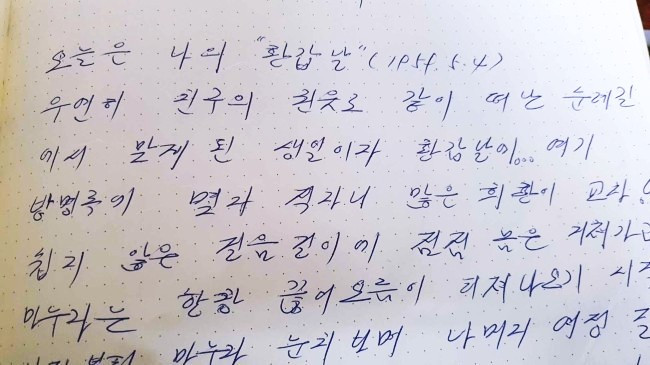 오늘은 나의 "환갑날"(1959. 5. 4)
우연히 친구의 권유로 같이 떠난 순례길
에서 맞게 된 생일이자 환갑날에... 여기
방명록에 몇자 적자니 많은 희환이 교차
쉽지 않은 걸음걸이에 점점 몸은 지쳐가고
마누라는 한광 끓어오름이 터져나오기 시작
마누라 눈치보며 나머지 여정